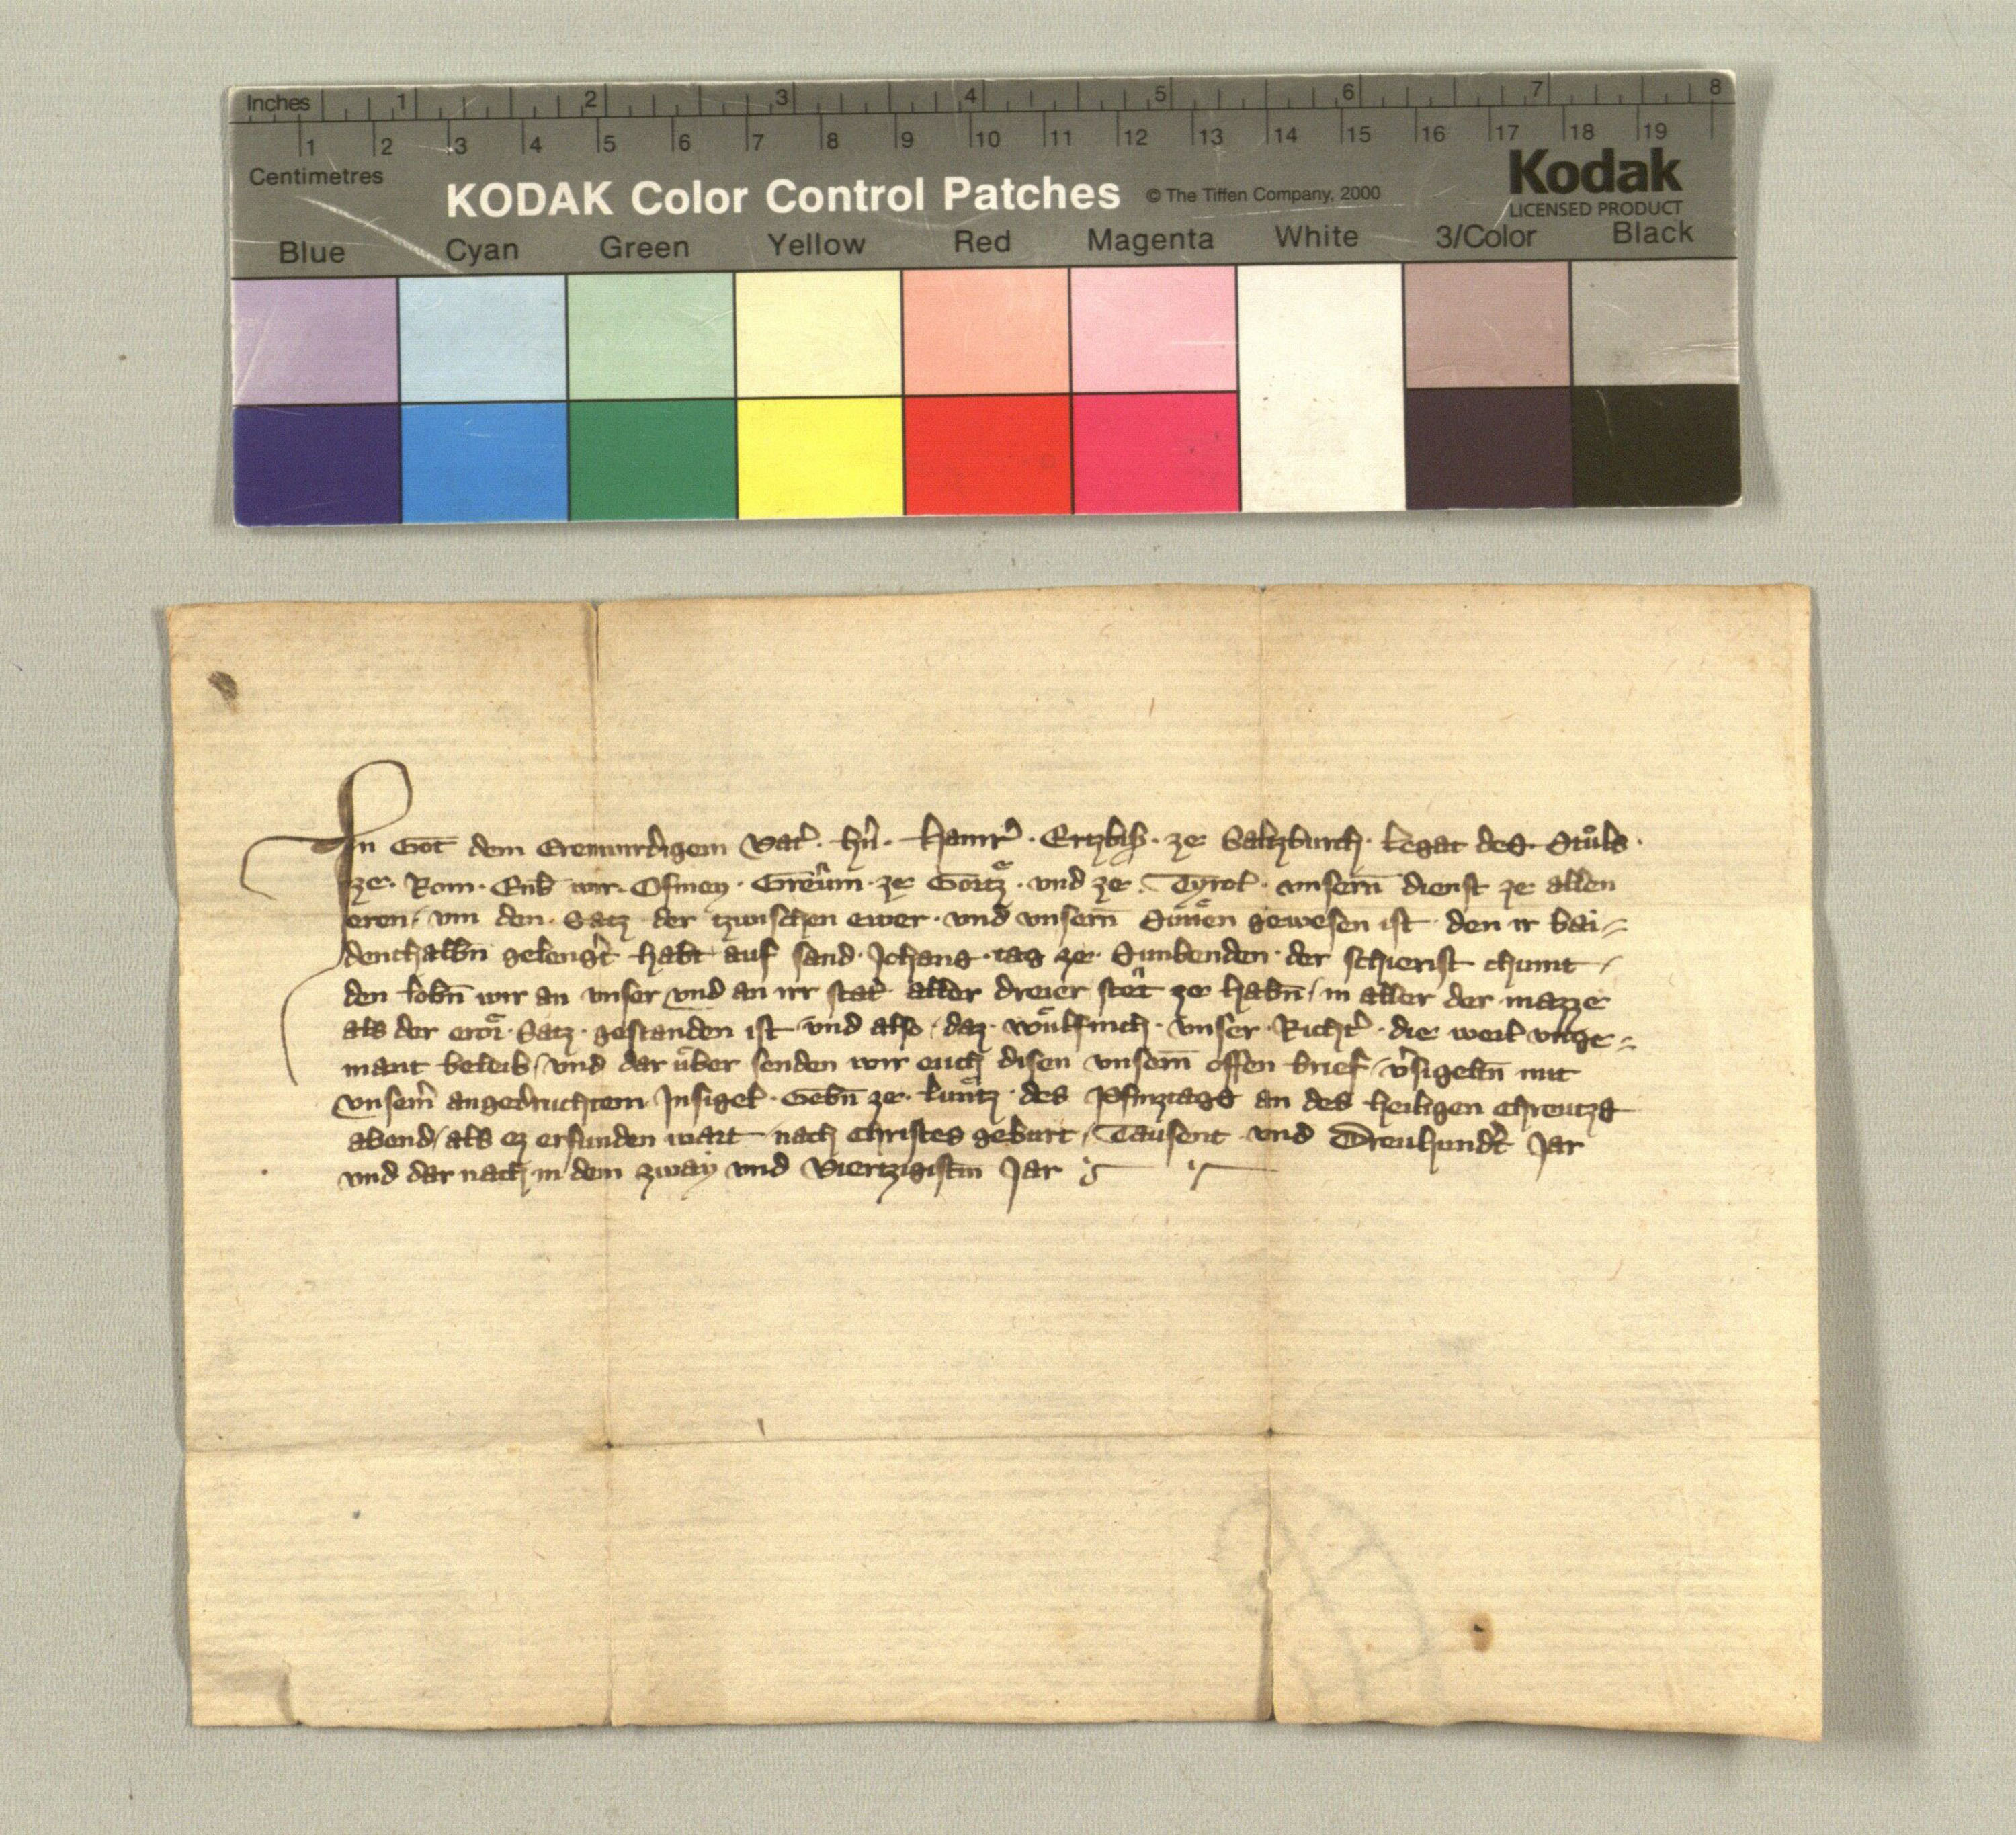 Inches 1 2 3 4 5 6 7 8
1 2 3 4 5 6 7 8 9 10 11 12 13 14 15 16 17 18 19
Centimetres
KODAK Color Control Patches © The Tiffen Company, 2000
Kodak
LICENSED PRODUCT
Blue Cyan Green Yellow Red Magenta White 3/Color Black
In Got dem Erenwirdigem Vat͛ · hn͛ · Hainr͛ · Ertzbisch · ze Saltzburch · Legat des Stůls ·
ze · Rom · Enb̄ wir · Ofmey · Grēuin · ze Gortzͤ · vnd ze · Tyrol · vnsern̄ dienst ze allen
eren / vm den · Satz der tzwischen ewer · vnd vnsern̄ gewesen ist den ir bai=
denthalbn̄ gelengt͛ habt auf sand · Johans · tag ze · Sunbenden · der schierist chumt /
den lobn̄ wir an vnser vnd an irr stat aller dreier stēt ze habn̄ / in aller der mazze
als der eroͤr · Satz · gestanden ist vnd also / daz · Wuͤlfinch · vnser · Richt͛ · die weil vnge=
mant beleib / vnd dar uͤber senden wir euch disen vnsern̄ offen brief / v͛sigeltn̄ mit
vnserm̄ angedruchtem Insigel · Gebn̄ ze · Luͤntz · des Pfinztags an des heiligen Chreutzs
abend / als ez erfunden wart nach Christes geburt / Tausent vnd Dreuhundt͛ Jar
vnd dar nach in dem zway vnd Viertzigistm̄ Jar